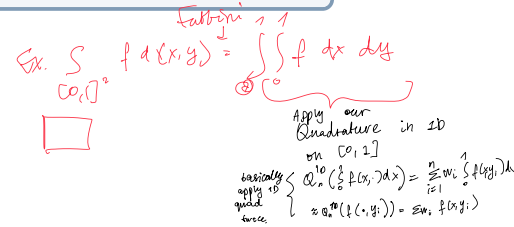 Fubbini
Ex. ∫ f d(x,y) = ∫ ∫ f dx dy
[0,1]²
0
1 1
Apply our
Quadrature in 1D
on [0,1]
basically
apply 1D
quad
twice.
Qₙ¹ᴰ(∫₀¹ f(x,·)dx) = Σᵢ₌₁ⁿ wᵢ ∫₀¹ f(x,yᵢ)d
≈ Qₙ¹ᴰ(f(•,yᵢ)) = Σwᵢ f(x,yᵢ)